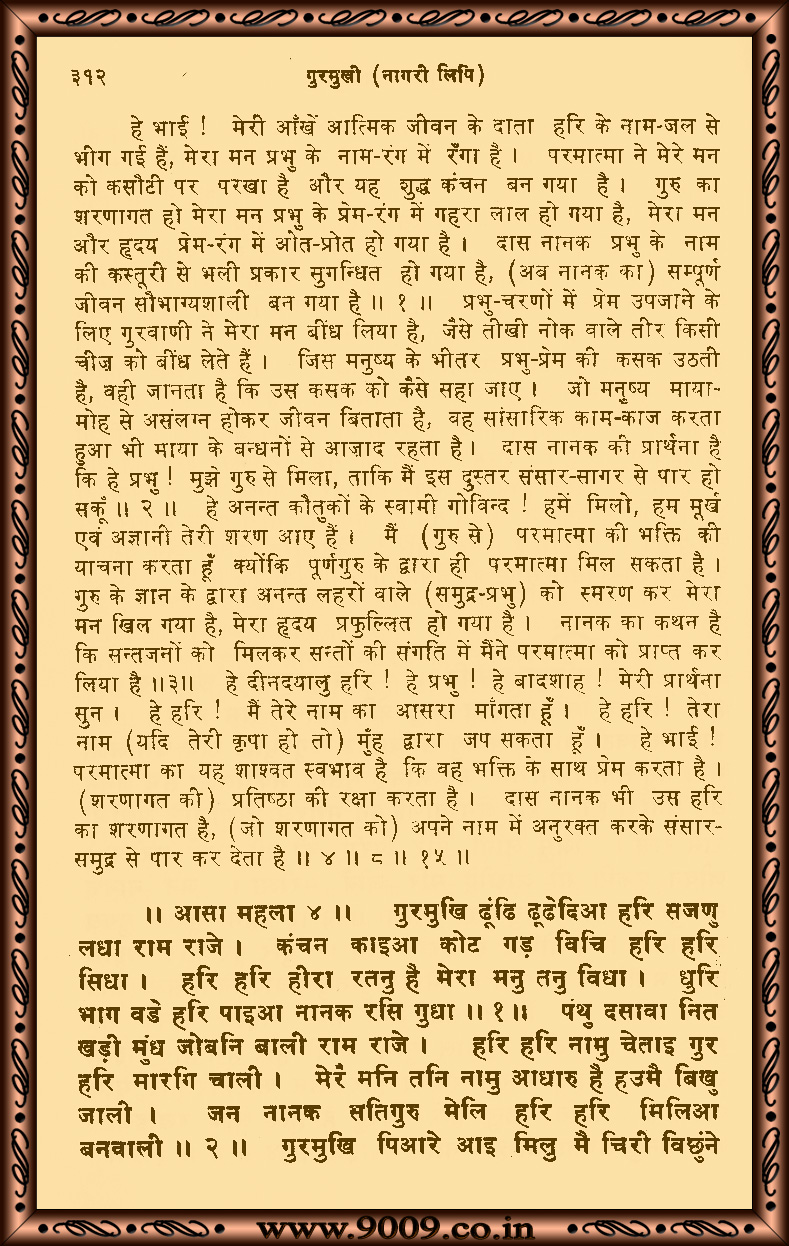 ३१२ गुरमुखी (नागरी लिपि)
हे भाई ! मेरी आँखें आत्मिक जीवन के दाता हरि के नाम-जल से
भीग गई हैं, मेरा मन प्रभु के नाम-रंग में रँगा है । परमात्मा ने मेरे मन
को कसौटी पर परखा है और यह शुद्ध कंचन बन गया है । गुरु का
शरणागत हो मेरा मन प्रभु के प्रेम-रंग में गहरा लाल हो गया है, मेरा मन
और हृदय प्रेम-रंग में ओत-प्रोत हो गया है । दास नानक प्रभु के नाम
की कस्तूरी से भली प्रकार सुगन्धित हो गया है, (अब नानक का) सम्पूर्ण
जीवन सौभाग्यशाली बन गया है ॥ १ ॥ प्रभु-चरणों में प्रेम उपजाने के
लिए गुरवाणी ने मेरा मन बींध लिया है, जैसे तीखी नोक वाले तीर किसी
चीज़ को बींध लेते हैं । जिस मनुष्य के भीतर प्रभु-प्रेम की कसक उठती
है, वही जानता है कि उस कसक को कैसे सहा जाए । जो मनुष्य माया-
मोह से असंलग्न होकर जीवन बिताता है, वह सांसारिक काम-काज करता
हुआ भी माया के बन्धनों से आज़ाद रहता है । दास नानक की प्रार्थना है
कि हे प्रभु ! मुझे गुरु से मिला, ताकि मैं इस दुस्तर संसार-सागर से पार हो
सकूँ ॥ २ ॥ हे अनन्त कौतुकों के स्वामी गोविन्द ! हमें मिलो, हम मूर्ख
एवं अज्ञानी तेरी शरण आए हैं । मैं (गुरु से) परमात्मा की भक्ति की
याचना करता हूँ क्योंकि पूर्णगुरु के द्वारा ही परमात्मा मिल सकता है ।
गुरु के ज्ञान के द्वारा अनन्त लहरों वाले (समुद्र-प्रभु) को स्मरण कर मेरा
मन खिल गया है, मेरा हृदय प्रफुल्लित हो गया है । नानक का कथन है
कि सन्तजनों को मिलकर सन्तों की संगति में मैंने परमात्मा को प्राप्त कर
लिया है ॥३॥ हे दीनदयालु हरि ! हे प्रभु ! हे बादशाह ! मेरी प्रार्थना
सुन । हे हरि ! मैं तेरे नाम का आसरा माँगता हूँ । हे हरि ! तेरा
नाम (यदि तेरी कृपा हो तो) मुँह द्वारा जप सकता हूँ । हे भाई !
परमात्मा का यह शाश्वत स्वभाव है कि वह भक्ति के साथ प्रेम करता है ।
(शरणागत की) प्रतिष्ठा की रक्षा करता है । दास नानक भी उस हरि
का शरणागत है, (जो शरणागत को) अपने नाम में अनुरक्त करके संसार-
समुद्र से पार कर देता है ॥ ४ ॥ ८ ॥ १५ ॥
॥ आसा महला ४ ॥ गुरमुखि ढूंढि ढूढेदिआ हरि सजणु
लधा राम राजे । कंचन काइआ कोट गड़ विचि हरि हरि
सिधा । हरि हरि हीरा रतनु है मेरा मनु तनु विधा । धुरि
भाग वडे हरि पाइआ नानक रसि गुधा ॥ १ ॥ पंथु दसावा नित
खड़ी मुंध जोबनि बाली राम राजे । हरि हरि नामु चेताइ गुर
हरि मारगि चाली । मेरै मनि तनि नामु आधारु है हउमै बिखु
जाली । जन नानक सतिगुरु मेलि हरि हरि मिलिआ
बनवाली ॥ २ ॥ गुरमुखि पिआरे आइ मिलु मै चिरी विछुंने
www.9009.co.in